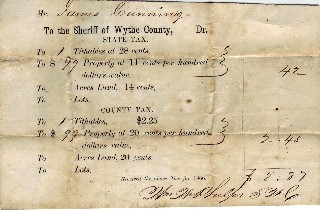 Mr. James
To the Sheriff of Wythe County, Dr.
STATE TAX.
To 1 Tithables at 28 cents,
To $ 99 Property at 14 cents per hundred
dollars value, 42
To Acres Land, 14 cents,
To Lots.
COUNTY TAX.
To 1 Tithables, $2.25
To $ 99 Property at 20 cents per hundred
dollars value, 2.45
To Acres Land, 20 cents,
To Lots.
$ 2.87